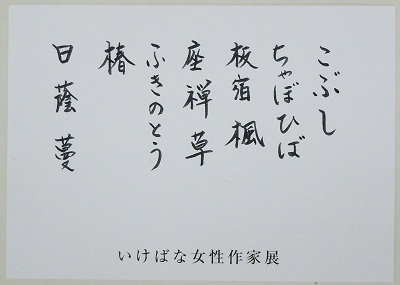 こぶし
ちゃぼひば
板宿楓
座禅草
ふきのとう
椿
日蔭蔓
いけばな女性作家展